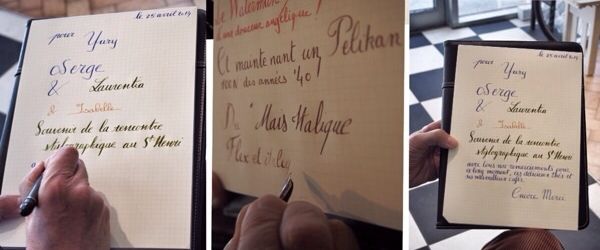 Le 25 avril 2014
pour Yury
Serge
& Laurentia
& Isabelle
Souvenir de la rencontre
stylographique au St Henri
Le Waterman
d'une douceur angélique!
Et maintenant un Pelikan
100N des années '40
Du "Mais Italique
Flex et italique
Le 25 avril 2014
pour Yury
Serge
& Laurentia
& Isabelle
Souvenir de la rencontre
stylographique au St Henri
avec tous nos remerciements pour
ce long moment, ces délicieux thés et
ces merveilleux cafés.
Encore Merci